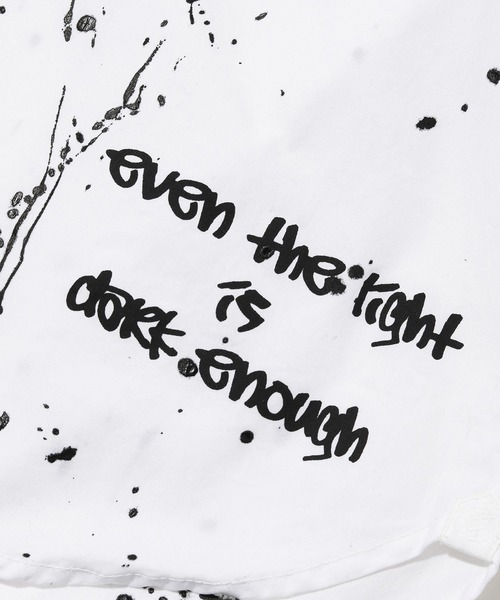 even the right
is
dark enough